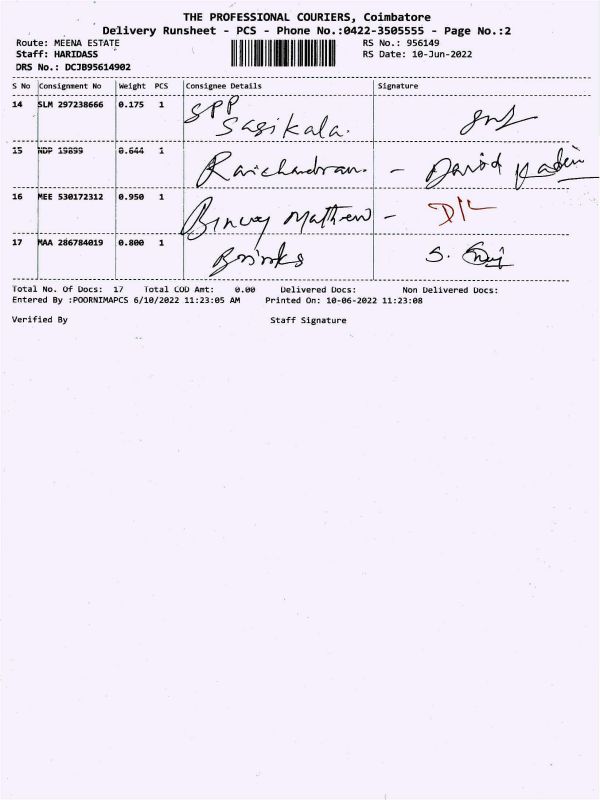 THE PROFESSIONAL COURIERS, Coimbatore
Delivery Runsheet - PCS - Phone No.:0422-3505555 - Page No.:2
Route: MEENA ESTATE RS No.: 956149
Staff: HARIDASS RS Date: 10-Jun-2022
DRS No.: DCJB95614902
S No Consignment No Weight PCS Consignee Details Signature
14 SLM 297238666 0.175 1 SPP
Sasikala.
15 NDP 19899 0.644 1 Ravichandran. -
16 MEE 530172312 0.950 1 Mathew - D/L
17 MAA 286784019 0.800 1 Brinks S.
Total No. Of Docs: 17 Total COD Amt: 0.00 Delivered Docs: Non Delivered Docs:
Entered By :POORNIMAPCS 6/10/2022 11:23:05 AM Printed On: 10-06-2022 11:23:08
Verified By Staff Signature